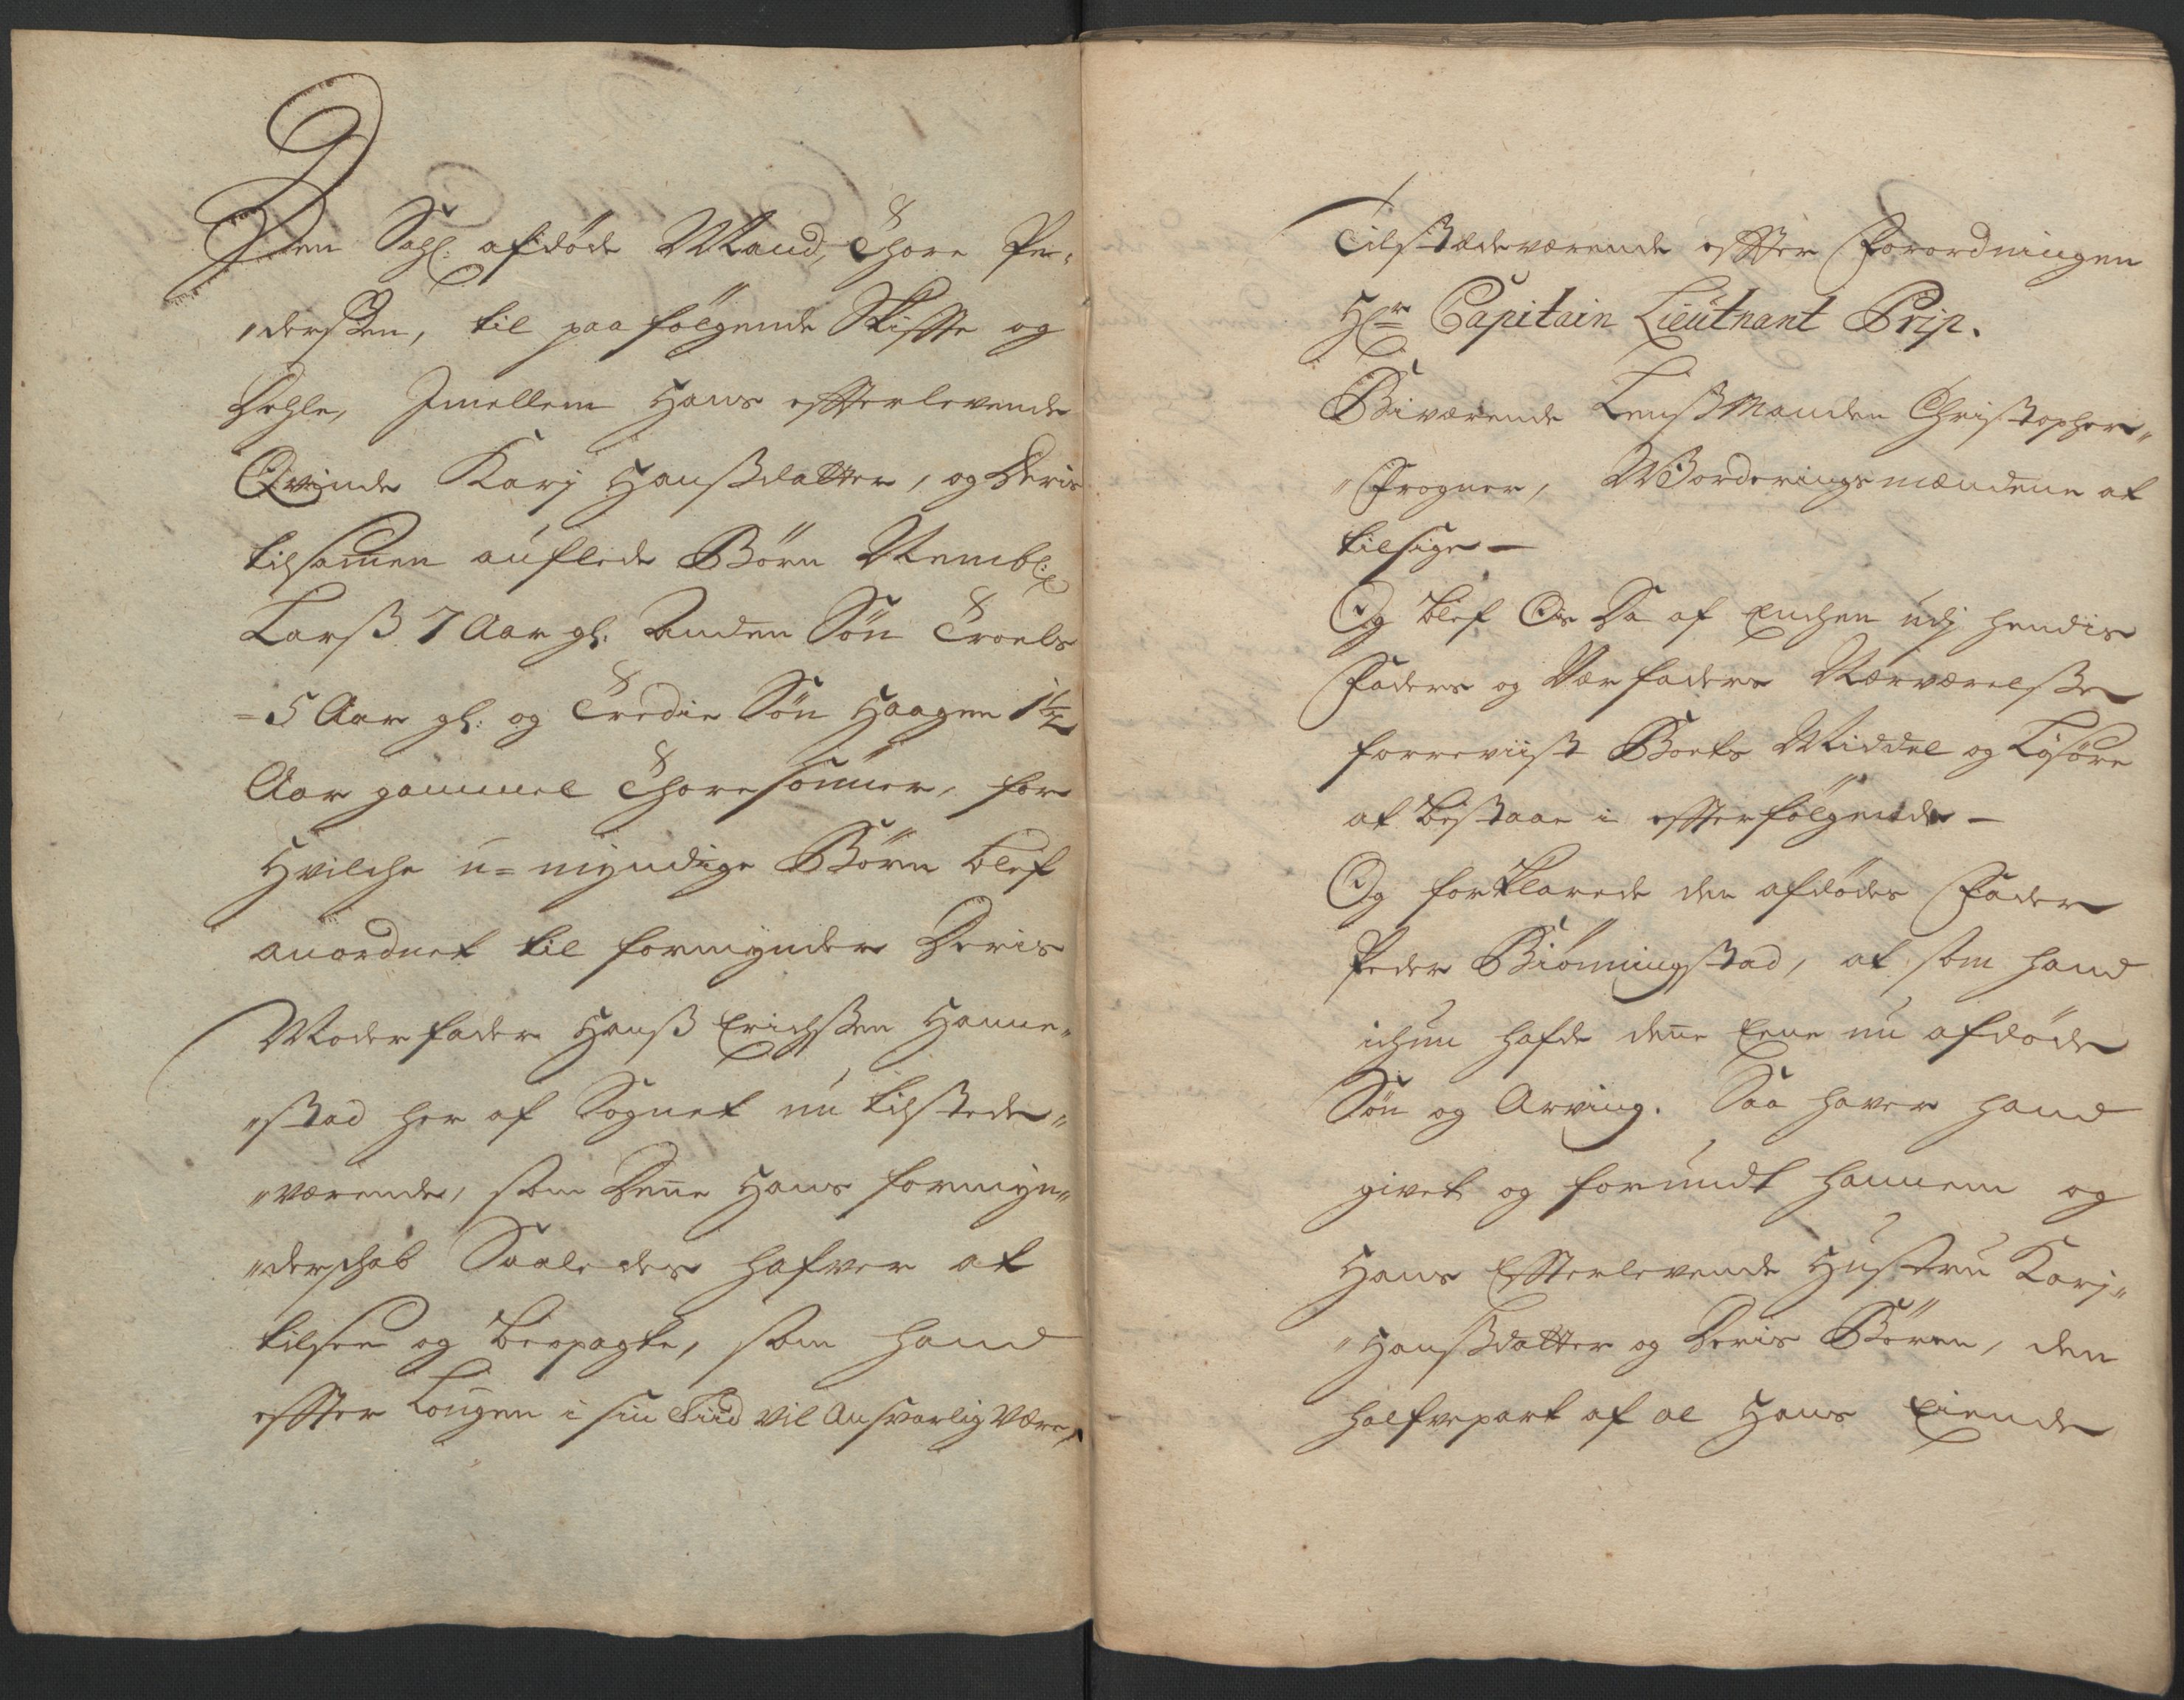 Den Sahl: afdøde Mand, Thore Pe„
„derßen, til paafølgende Skiffte og
Dehle, Imellem Hans effterlevende
Qvinde Karj Hanßdatter, og Deris
tilsamen auflede Børn Nembl:
Larß 7 Aar gl: Anden Søn Troels
= 5 Aar gl: og Tredie Søn Haagen 1½
Aar gammel Thoresønner, for
Hvilche u=myndige Børn blef
anordnet til formynder Deris
Moderfader Hanß Erichßen Hanne„
„stad her af Sognet nu tilstede„
„værende, som Denne Hans formyn„
„derschab Saaledes hafver at
tilsee og beopagte, som hand
effter Lougen i sin Tiid vil Ansvarlig være,
Tilstædeværende effter Forordningen
Hr Capitain Lieütnant Prip.
Biværende Lenßmanden Christopher„
„Frogner, Worderingsmændene at
tilsige —
Og blef Os Da af Enchen udj hendis
Faders og Værfaders Nærværelße
forreviist Boets Middel og Løsøre
at bestaae i effterfølgende —
Og forklarede den afdødes Fader
Peder Biønningstad, at som hand
ichun hafde denne Eene nu afdøde
Søn og Arving. Saa haver hand
givet og forundt hannem og
Hans Effterlevende Hustru Karj„
„Hanßdatter og Deris Børen, den
halfvepart af al Hans Eiende